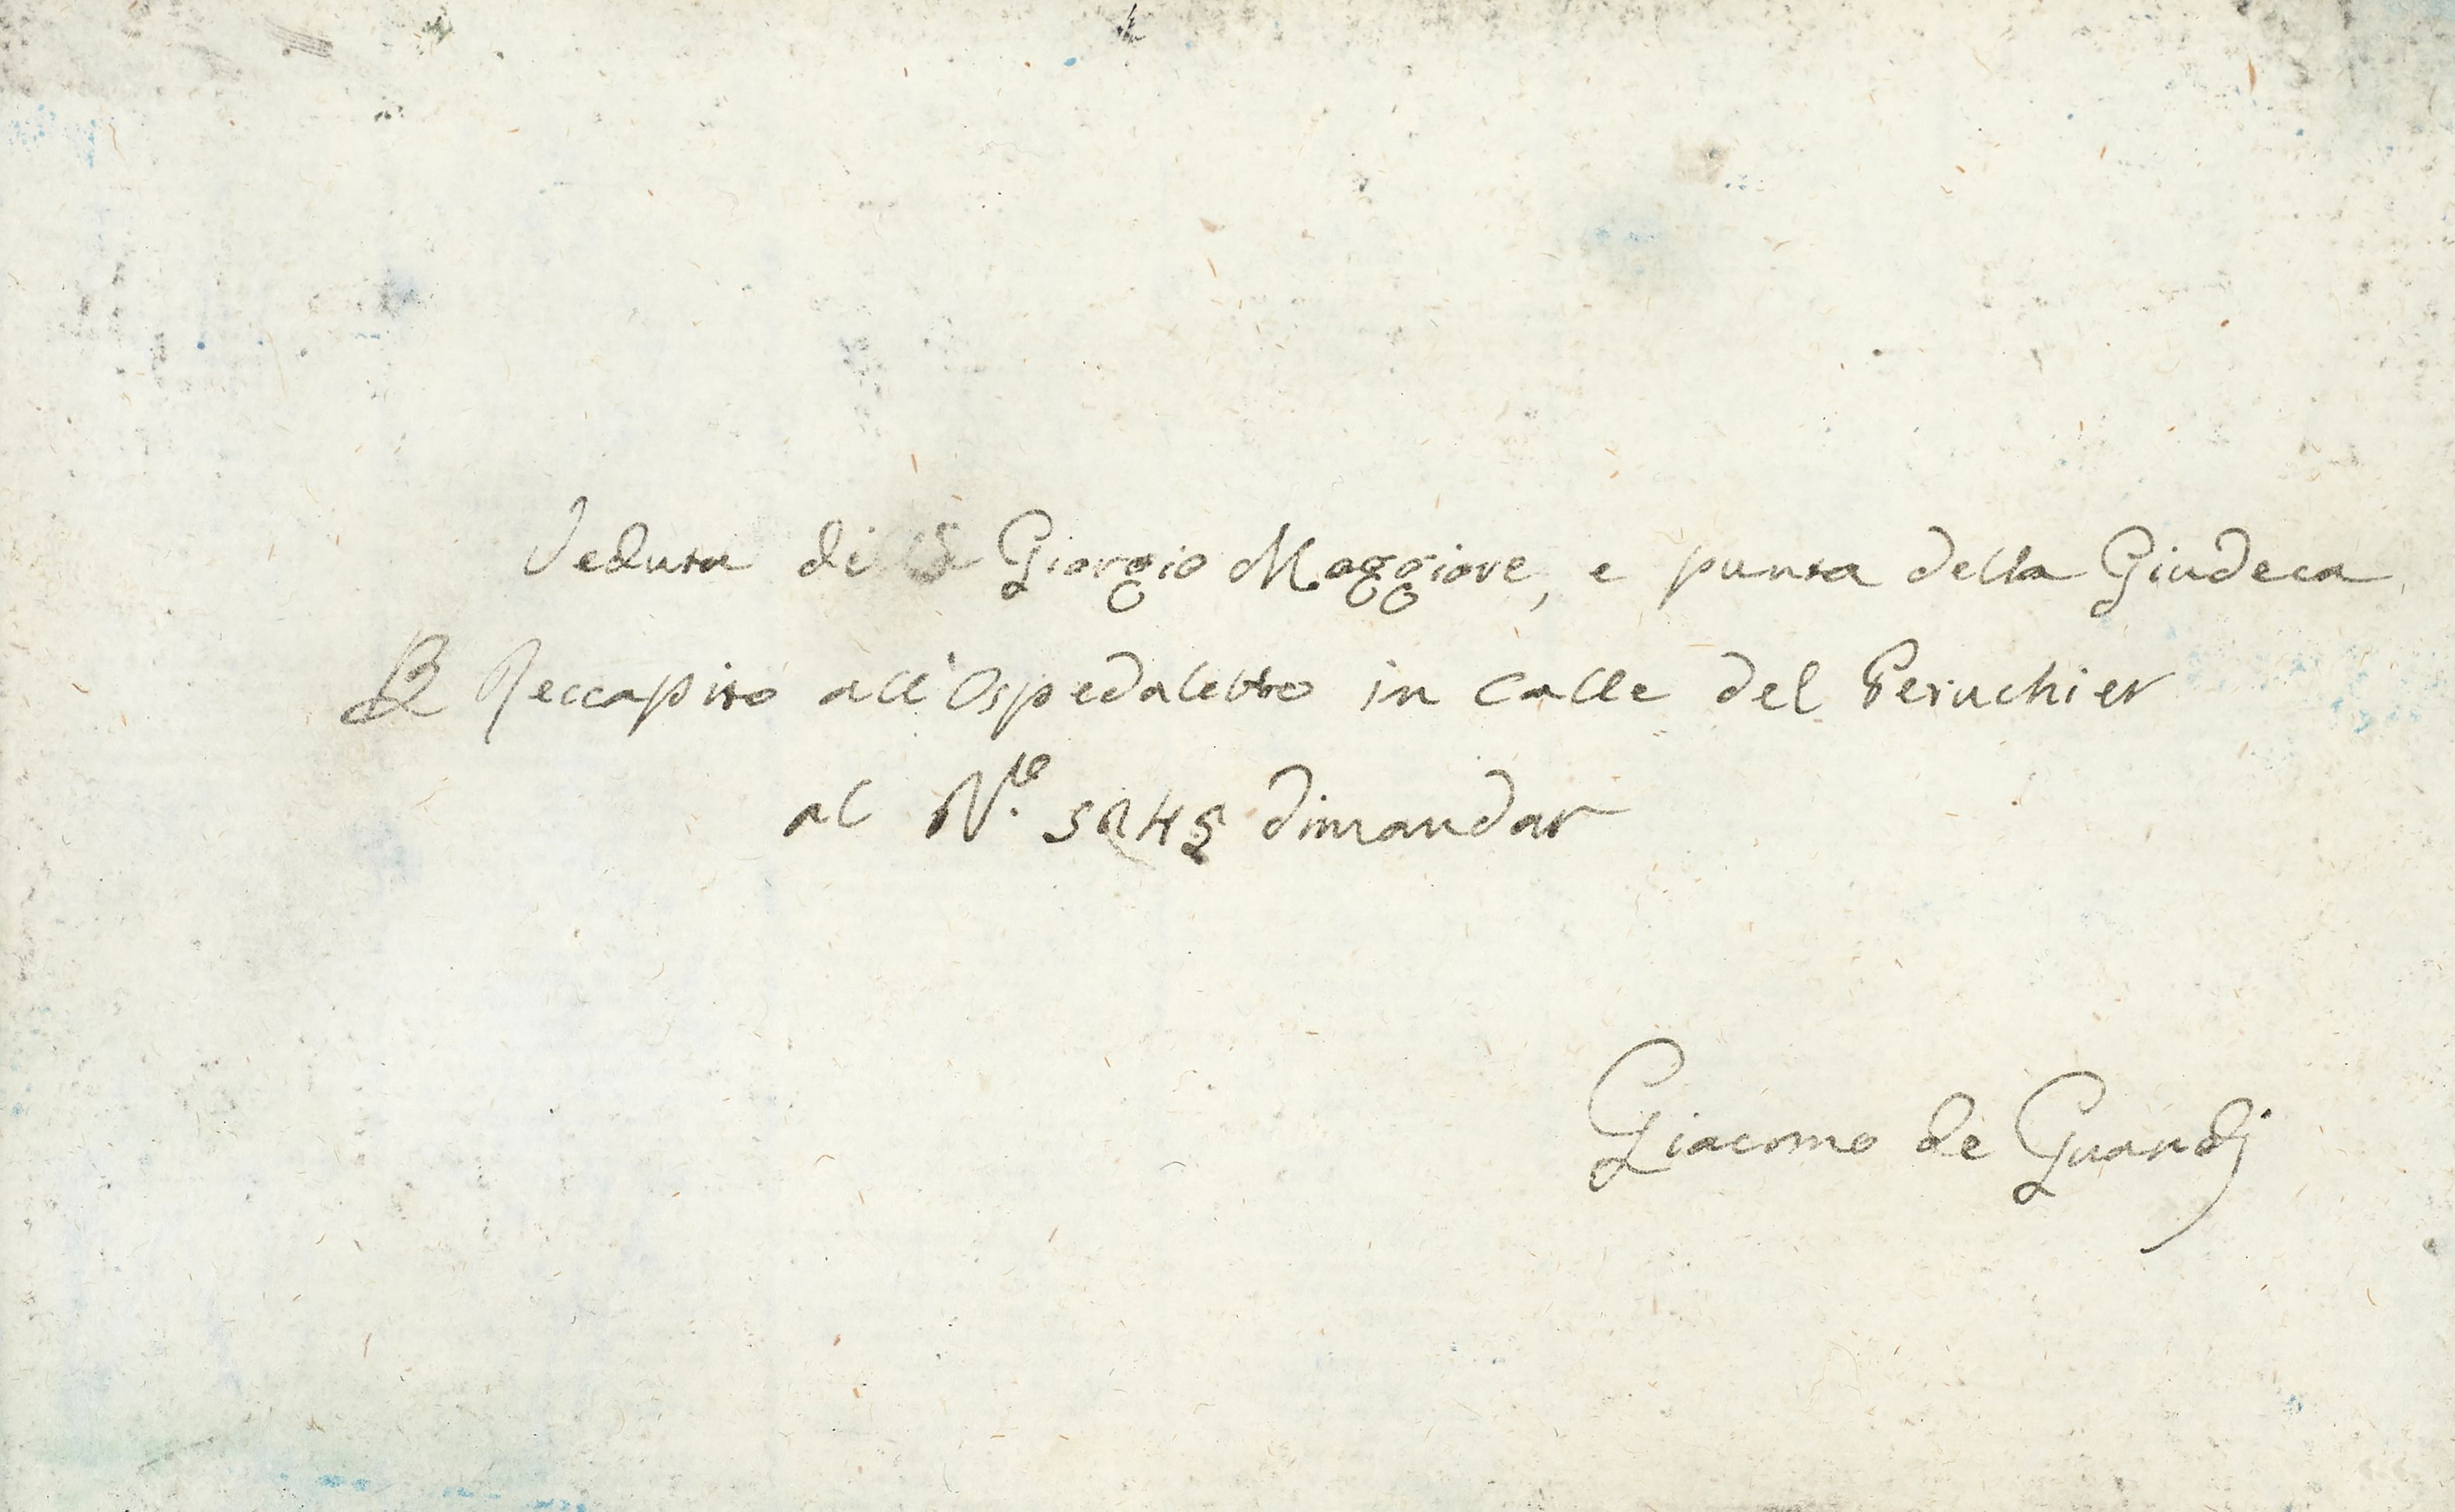 Veduta di S Giorgio Maggiore, e punta della Giudeca
Reccapito all'Ospedaletto in Calle del Peruchier
al N.ro dimandar
Giacomo de Guardi